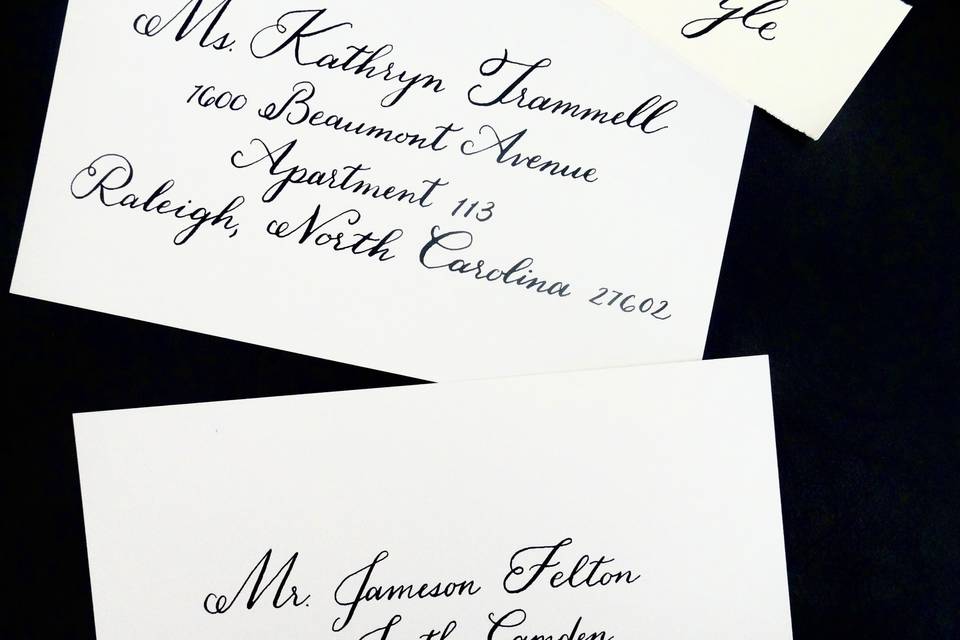 yle
Ms. Kathryn Trammell
1600 Beaumont Avenue
Apartment 113
Raleigh, North Carolina 27602
Mr. Jameson Felton
Camden